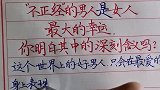 “不正经的男人是女人
最大的幸运，
你明白其中的深刻含义吗？
这个世界上的好男人，只会在最爱的